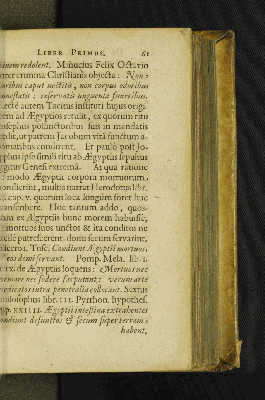 LIBER PRIMUS. 61
cinem redolent. Minucius Felix Octavio
inter crimina Christianis objecta: Non
oribus caput nectitis, non corpus odoribus
honestatis; reservatis unguenta funeribus.
Recte autem Tacitus instituti hujus origi-
nem ad Ægyptios retulit, ex quorum ritu
Josephus in mandatis
dedit, ut patrem Jacobum vita functum a-
romatibus condirent. Et paulò post Jo-
sephus ipse simili ritu ab Ægyptiis sepultus
legitur Genesi extremâ. At qua ratione
modo Ægyptii corpora mortuorum,
condierint, multis narrat Herodotus lib.
cap. v. quorum loca longum foret huc
transcribere. Hoc tantum addo, quos-
dam ex Ægyptiis hunc morem habuisse,
mortuos suos unctos & ita conditos ne
facilè putrescerent, domi secum servarint.
Cicero I. Tusc. Condiunt Ægyptii mortuos,
eos domi servant. Pomp. Mela, lib. I.
IX. de Ægyptiis loquens: Mortuos nec
cremare nec fodere fas putant; verum arte
medicatos intra penetralia collocant. Sextus
philosophus lib. III. Pyrrhon. hypothes.
cap. XXIIII. Ægyptii intestina extrahentes
condiunt defunctos & secum super terram
habent,